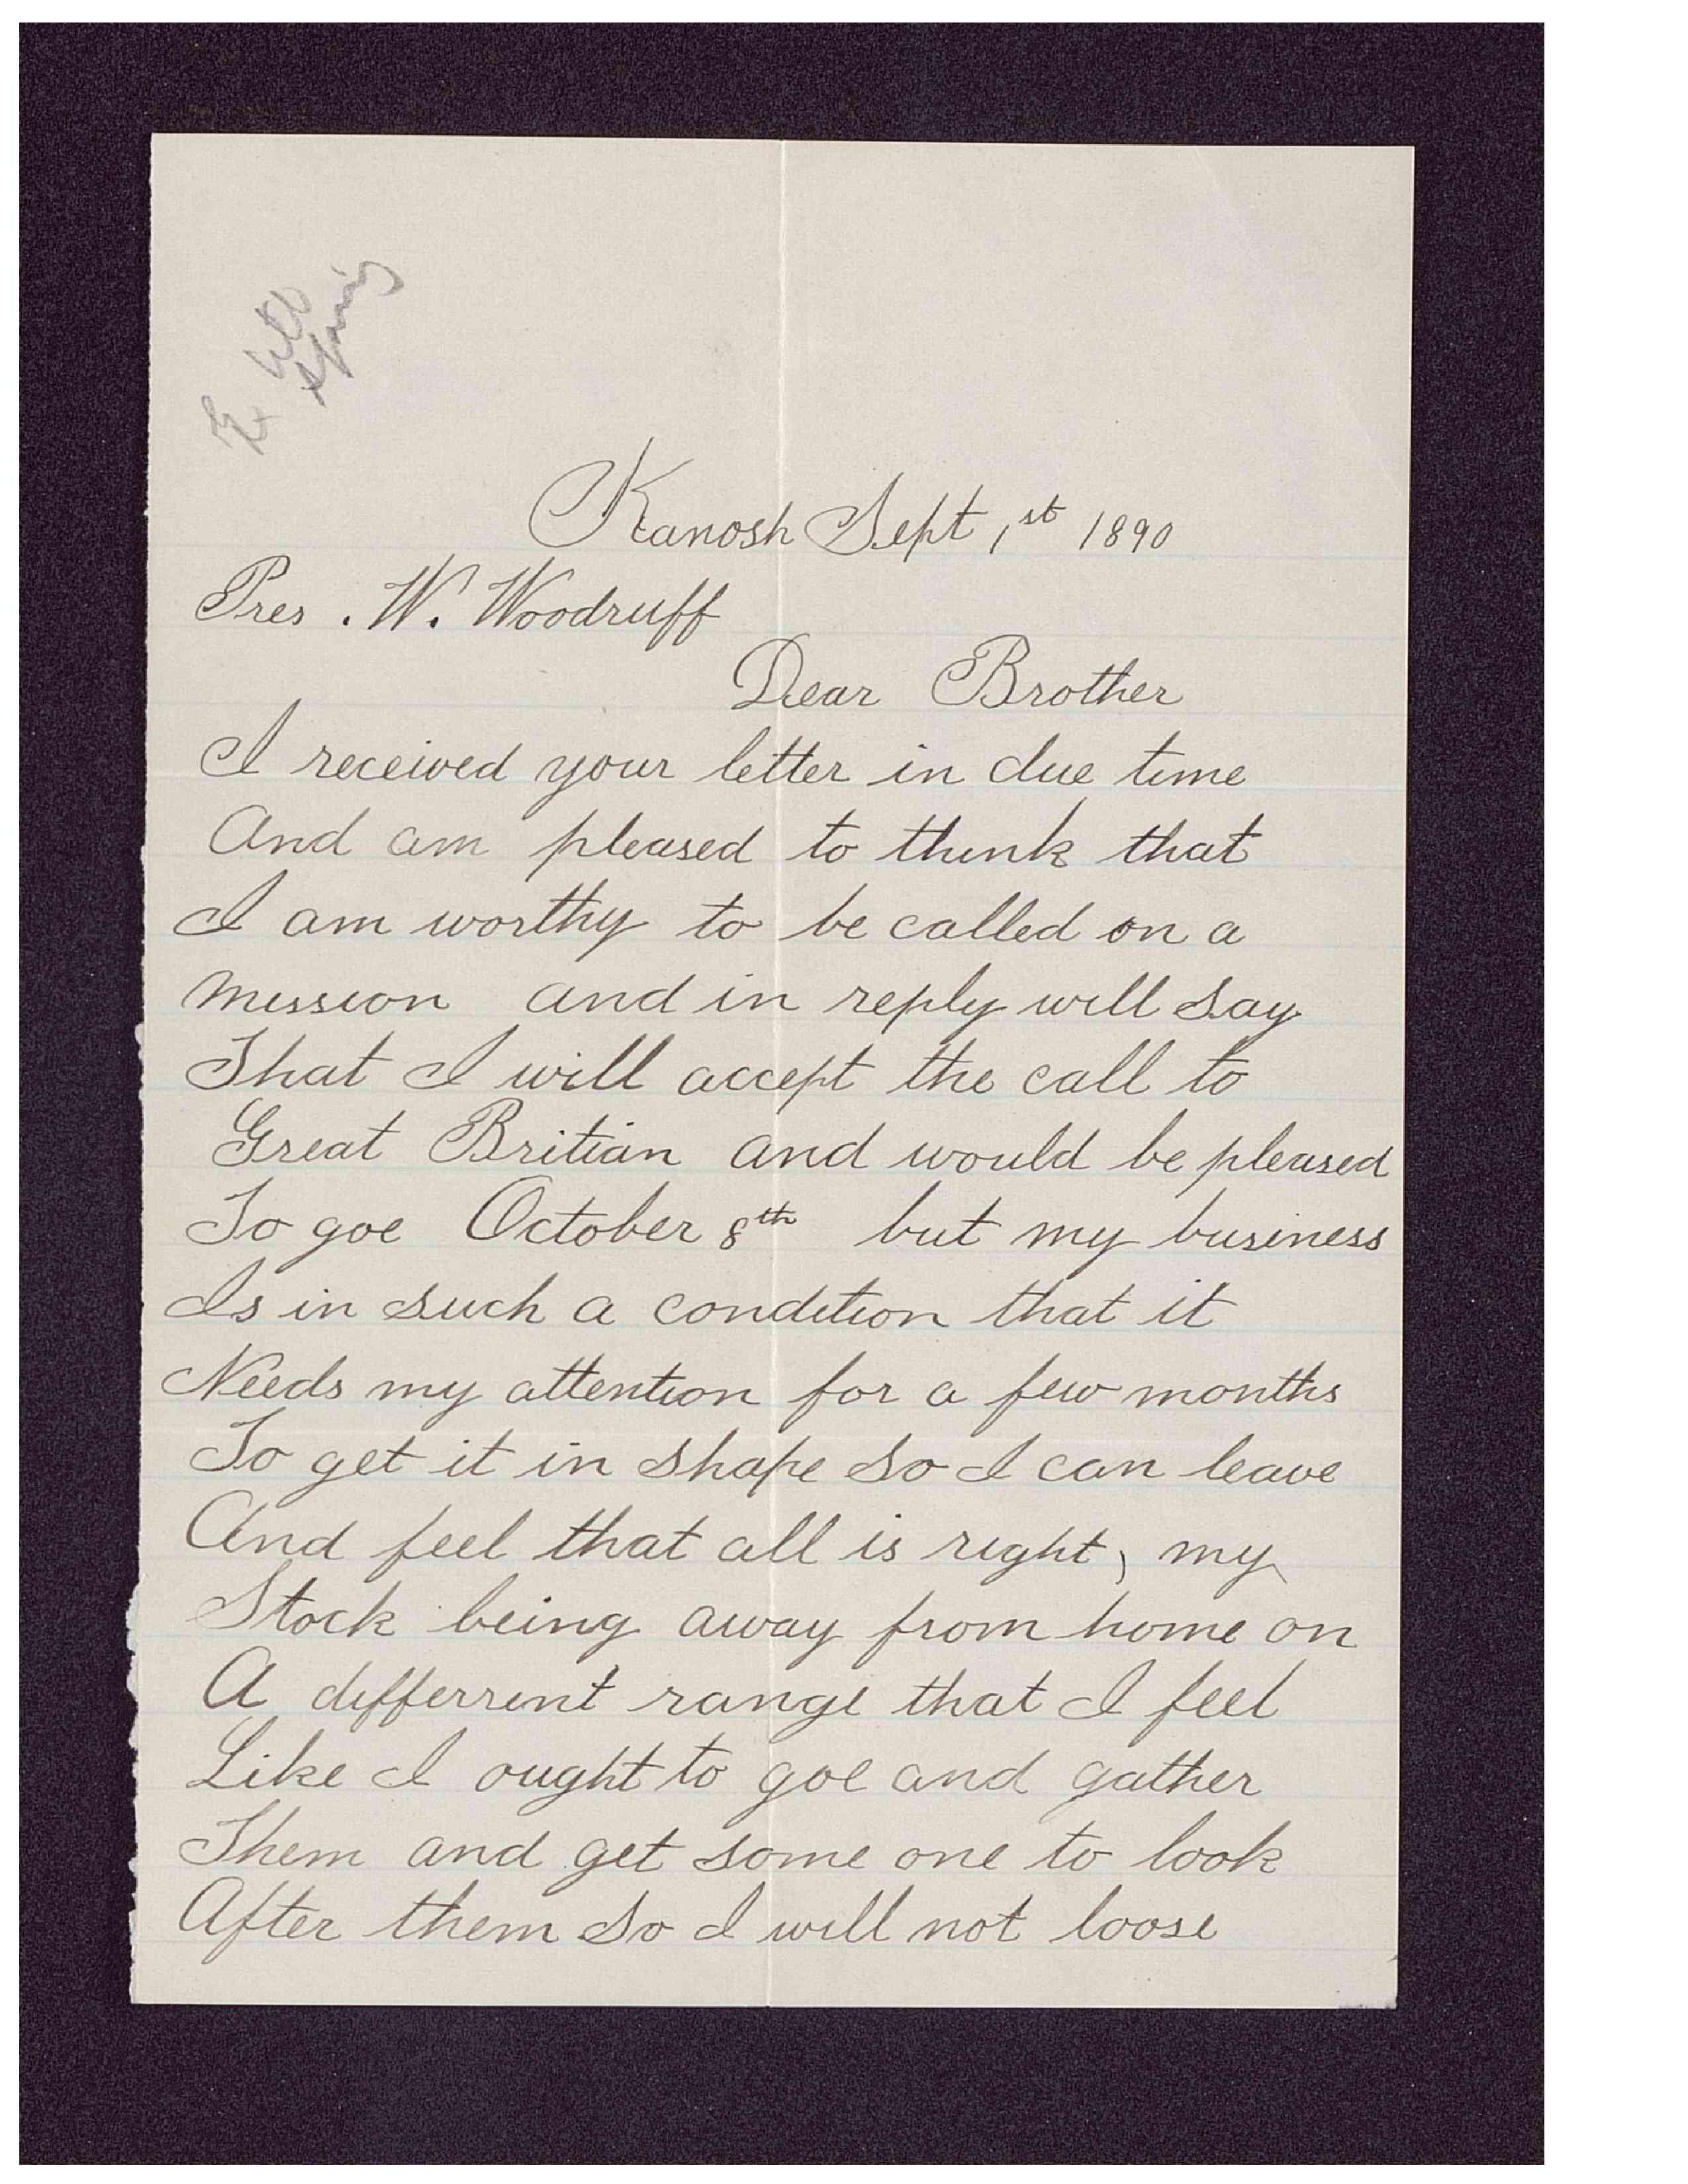 till
spring
Kanosh Sept 1st 1890
Pres. W. Woodruff
Dear Brother
I received your letter in due time
And am pleased to think that
I am worthy to be called on a
mission and in reply will say
That I will accept the call to
Great Britian and would be pleased
To goe October 8th but my business
Is in such a condition that it
Needs my attention for a few months
To get it in shape so I can leave
And feel that all is right, my
Stock being away from home on
A differrent range that I feel
Like I ought to goe and gather
Them and get some one to look
After them so I will not loose